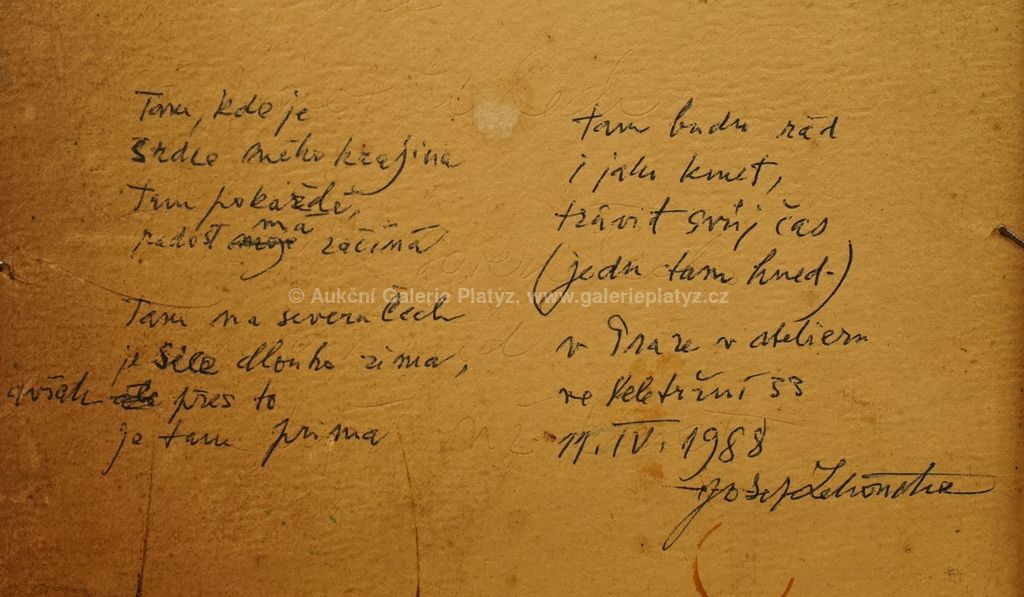 Tam, kde je
srdce mého krajina
Tam pokaždé,
radost moje má začíná
Tam na severu Čech
je sice dlouhá zima,
avšak ale přes to
je tam prima
tam budu rád
i jako kmet,
trávit svůj čas
(jedu tam hned-)
v Praze v atelieru
ve Veletržní 33
11. IV. 1988
Josef
© Aukční Galerie Platýz, www.galerieplatyz.cz